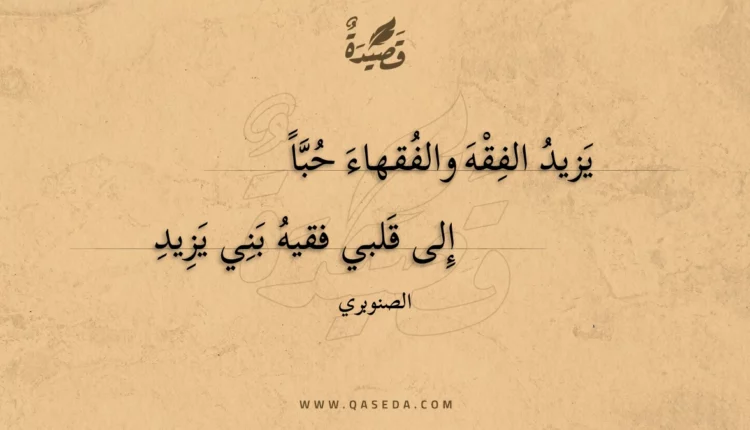 قَصِيْدَةٌ
يَزيدُ الفِقْهَ والفُقهاءَ حُبَّاً
إِلى قَلبي فقيهُ بَنِي يَزِيدِ
الصنوبري
WWW.QASEDA.COM